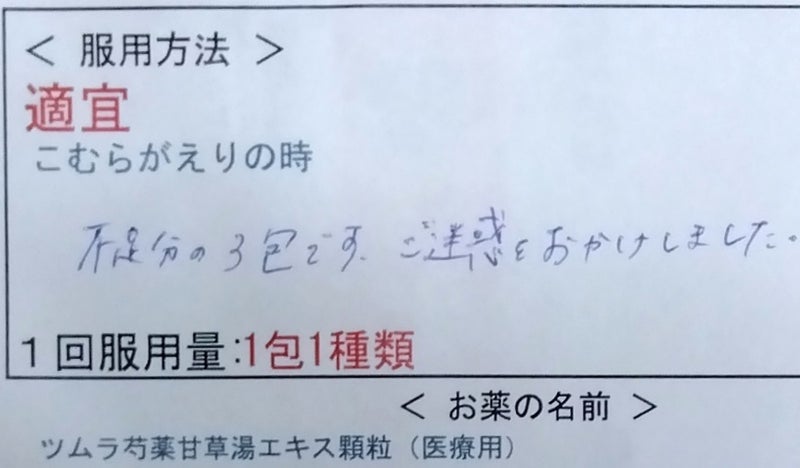 < 服用方法 >
適宜
こむらがえりの時
不足分の3包です。ご迷惑をおかけしました。
1回服用量:1包1種類
< お薬の名前 >
ツムラ芍薬甘草湯エキス顆粒(医療用)